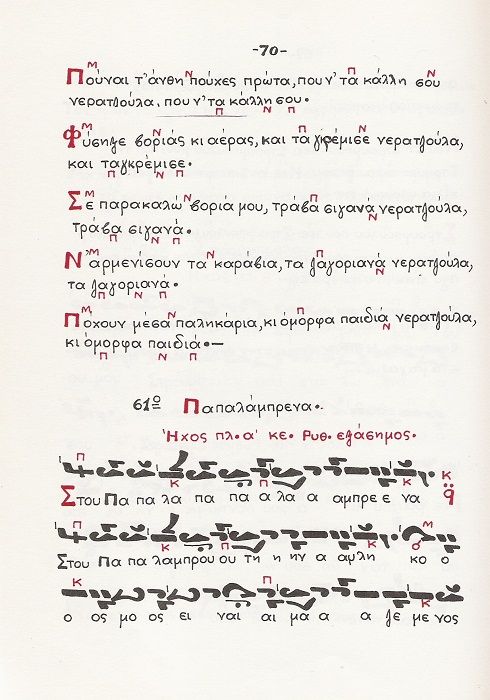 -70-
Πούναι τ' άνθη πούχες πρώτα, που ν' τα κάλλη σου
νερατζούλα, που ν' τα κάλλη σου.
Φύσηξε βοριάς κι αέρας, και τα γκρέμισε νερατζούλα,
και τα γκρέμισε.
Σε παρακαλώ βοριά μου, τράβα σιγανά νερατζούλα,
τράβα σιγανά.
Ν' αρμενίσουν τα καράβια, τα ζαγοριανά νερατζούλα,
τα ζαγοριανά.
Πόχουν μέσα παληκάρια, κι όμορφα παιδιά νερατζούλα,
κι όμορφα παιδιά.-
61ο Παπαλάμπρενα.
Ήχος πλ. α' κε. Ρυθ. εξάσημος.
Στου Πα πα λα πα πα α λα α αμπρε ε να
Στου Πα πα λαμπρου ου τη η ην α αυλη κο ο
ο οσ μο οσ ει ναι αι μα α α ζε μενος